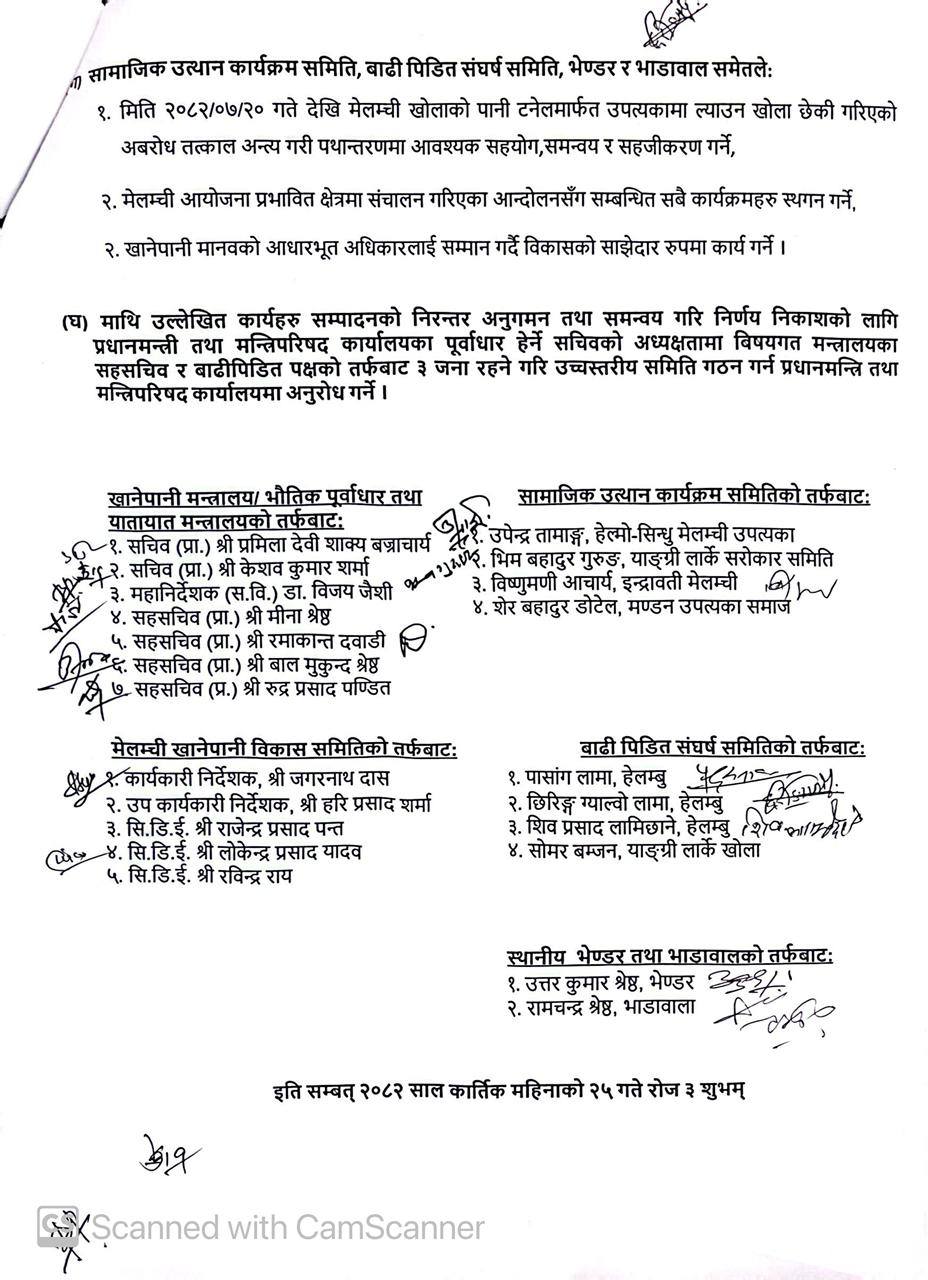 सामाजिक उत्थान कार्यक्रम समिति, बाढी पिडित संघर्ष समिति, भेण्डर र भाडावाल समेतले:
१. मिति २०८२/०७/२० गते देखि मेलम्ची खोलाको पानी टनेलमार्फत उपत्यकामा ल्याउन खोला छेकी गरिएको
अबरोध तत्काल अन्त्य गरी पथान्तरणमा आवश्यक सहयोग,समन्वय र सहजीकरण गर्ने,
२. मेलम्ची आयोजना प्रभावित क्षेत्रमा संचालन गरिएका आन्दोलनसँग सम्बन्धित सबै कार्यक्रमहरु स्थगन गर्ने,
२. खानेपानी मानवको आधारभूत अधिकारलाई सम्मान गर्दै विकासको साझेदार रुपमा कार्य गर्ने ।
(घ) माथि उल्लेखित कार्यहरु सम्पादनको निरन्तर अनुगमन तथा समन्वय गरि निर्णय निकाशको लागि
प्रधानमन्त्री तथा मन्त्रिपरिषद कार्यालयका पूर्वाधार हेर्ने सचिवको अध्यक्षतामा विषयगत मन्त्रालयका
सहसचिव र बाढीपिडित पक्षको तर्फबाट ३ जना रहने गरि उच्चस्तरीय समिति गठन गर्न प्रधानमन्त्रि तथा
मन्त्रिपरिषद कार्यालयमा अनुरोध गर्ने ।
खानेपानी मन्त्रालय/ भौतिक पूर्वाधार तथा
यातायात मन्त्रालयको तर्फबाट:
१. सचिव (प्रा.) श्री प्रमिला देवी शाक्य बज्राचार्य
२. सचिव (प्रा.) श्री केशव कुमार शर्मा
३. महानिर्देशक (स.वि.) डा. विजय जैशी
४. सहसचिव (प्रा.) श्री मीना श्रेष्ठ
५. सहसचिव (प्रा.) श्री रमाकान्त दवाडी
६. सहसचिव (प्रा.) श्री बाल मुकुन्द श्रेष्ठ
७. सहसचिव (प्र.) श्री रुद्र प्रसाद पण्डित
सामाजिक उत्थान कार्यक्रम समितिको तर्फबाट:
१. उपेन्द्र तामाङ्ग, हेल्मो-सिन्धु मेलम्ची उपत्यका
२. भिम बहादुर गुरुङ, याङ्ग्री लार्के सरोकार समिति
३. विष्णुमणी आचार्य, इन्द्रावती मेलम्ची
४. शेर बहादुर डोटेल, मण्डन उपत्यका समाज
मेलम्ची खानेपानी विकास समितिको तर्फबाट:
१. कार्यकारी निर्देशक, श्री जगरनाथ दास
२. उप कार्यकारी निर्देशक, श्री हरि प्रसाद शर्मा
३. सि.डि.ई. श्री राजेन्द्र प्रसाद पन्त
४. सि.डि.ई. श्री लोकेन्द्र प्रसाद यादव
५. सि.डि.ई. श्री रविन्द्र राय
बाढी पिडित संघर्ष समितिको तर्फबाट:
१. पासांग लामा, हेलम्बु
२. छिरिङ्ग ग्याल्वो लामा, हेलम्बु
३. शिव प्रसाद लामिछाने, हेलम्बु
४. सोमर बम्जन, याङ्ग्री लार्के खोला
स्थानीय भेण्डर तथा भाडावालको तर्फबाट:
१. उत्तर कुमार श्रेष्ठ, भेण्डर
२. रामचन्द्र श्रेष्ठ, भाडावाला
इति सम्बत् २०८२ साल कार्तिक महिनाको २५ गते रोज ३ शुभम्
CS Scanned with CamScanner